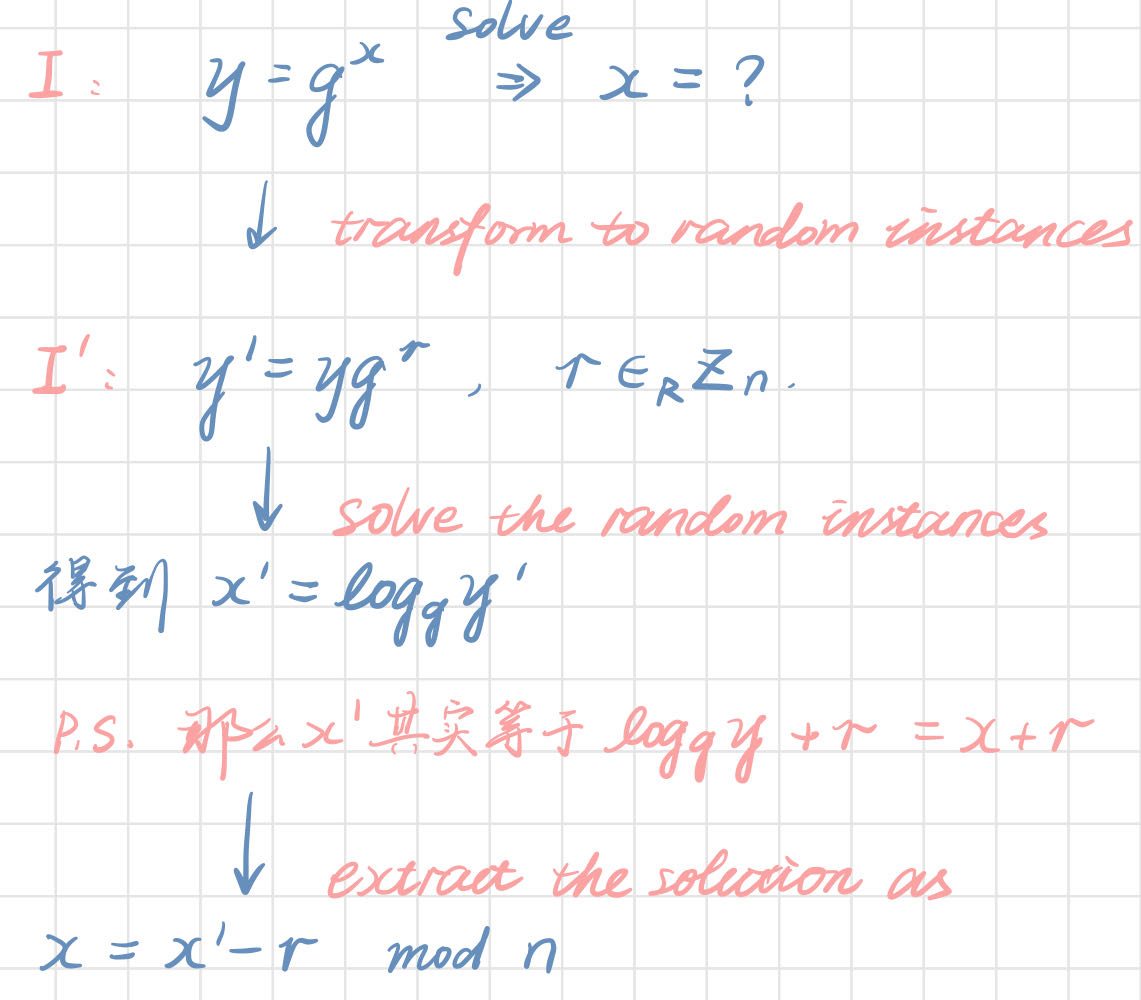 solve
I: y = g^x ⇒ x = ?
↓ transform to random instances
I': y' = yg^r , r ∈_R Z_n.
↓ solve the random instances
得到 x' = log_g y'
P.S. 那么 x' 其实等于 log_g y + r = x + r
↓ extract the solution as
x = x' - r mod n